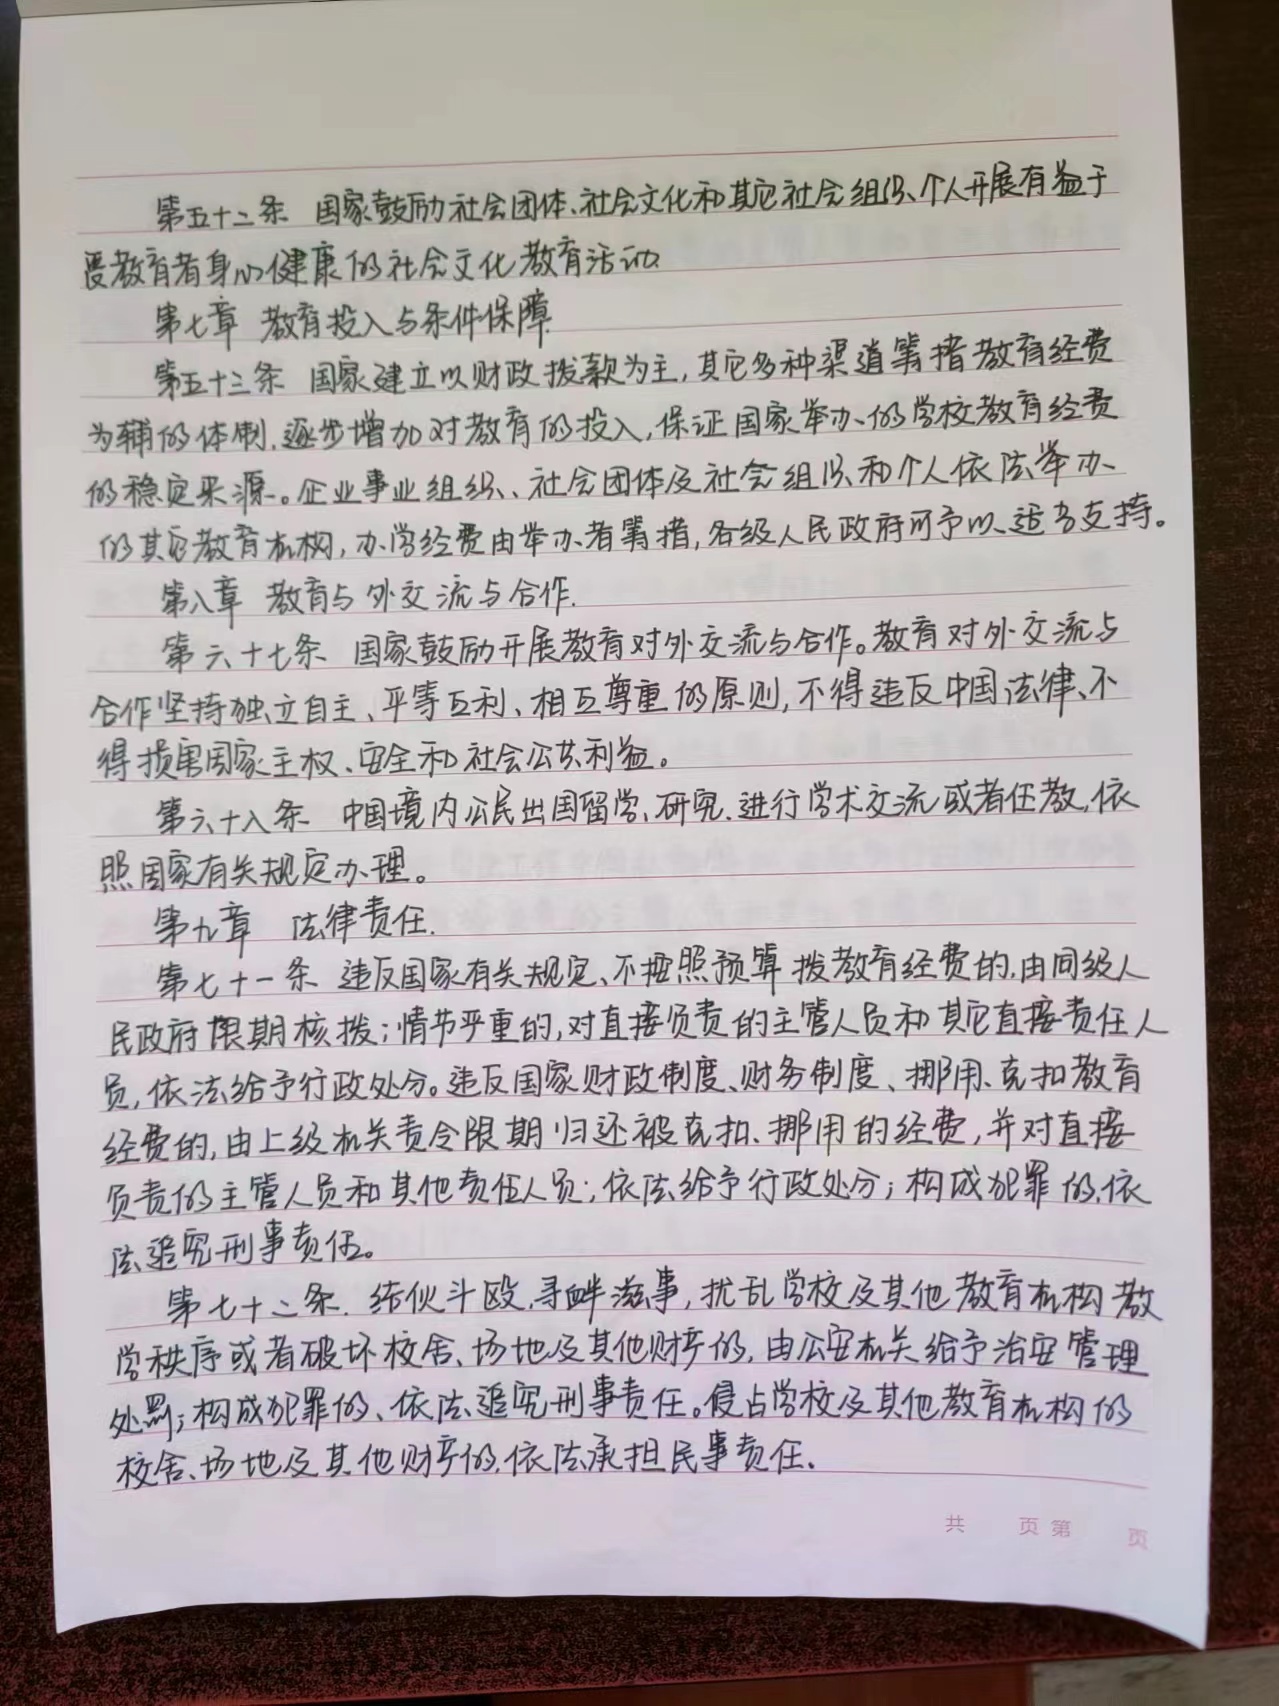 第五十二条 国家鼓励社会团体、社会文化和其它社会组织、个人开展有益于
受教育者身心健康的社会文化教育活动
第七章 教育投入与条件保障
第五十三条 国家建立以财政拨款为主,其它多种渠道筹措教育经费
为辅的体制,逐步增加对教育的投入,保证国家举办的学校教育经费
的稳定来源。企业事业组织、社会团体及社会组织和个人依法举办
的其它教育机构,办学经费由举办者筹措,各级人民政府可予以适当支持。
第八章 教育与外交流与合作.
第六十七条 国家鼓励开展教育对外交流与合作。教育对外交流与
合作坚持独立自主、平等互利、相互尊重的原则,不得违反中国法律、不
得损害国家主权、安全和社会公共利益。
第六十八条 中国境内公民出国留学、研究、进行学术交流或者任教,依
照国家有关规定办理。
第九章 法律责任.
第七十一条 违反国家有关规定、不按照预算拨教育经费的,由同级人
民政府限期核拨;情节严重的,对直接负责的主管人员和其它直接责任人
员,依法给予行政处分。违反国家财政制度、财务制度、挪用、克扣教育
经费的,由上级机关责令限期归还被克扣、挪用的经费,并对直接
负责的主管人员和其他责任人员,依法给予行政处分;构成犯罪的,依
法追究刑事责任。
第七十二条. 结伙斗殴,寻衅滋事,扰乱学校及其他教育机构教
学秩序或者破坏校舍、场地及其他财产的,由公安机关给予治安管理
处罚;构成犯罪的、依法追究刑事责任。侵占学校及其他教育机构的
校舍、场地及其他财产的,依法承担民事责任.
共 页 第 页